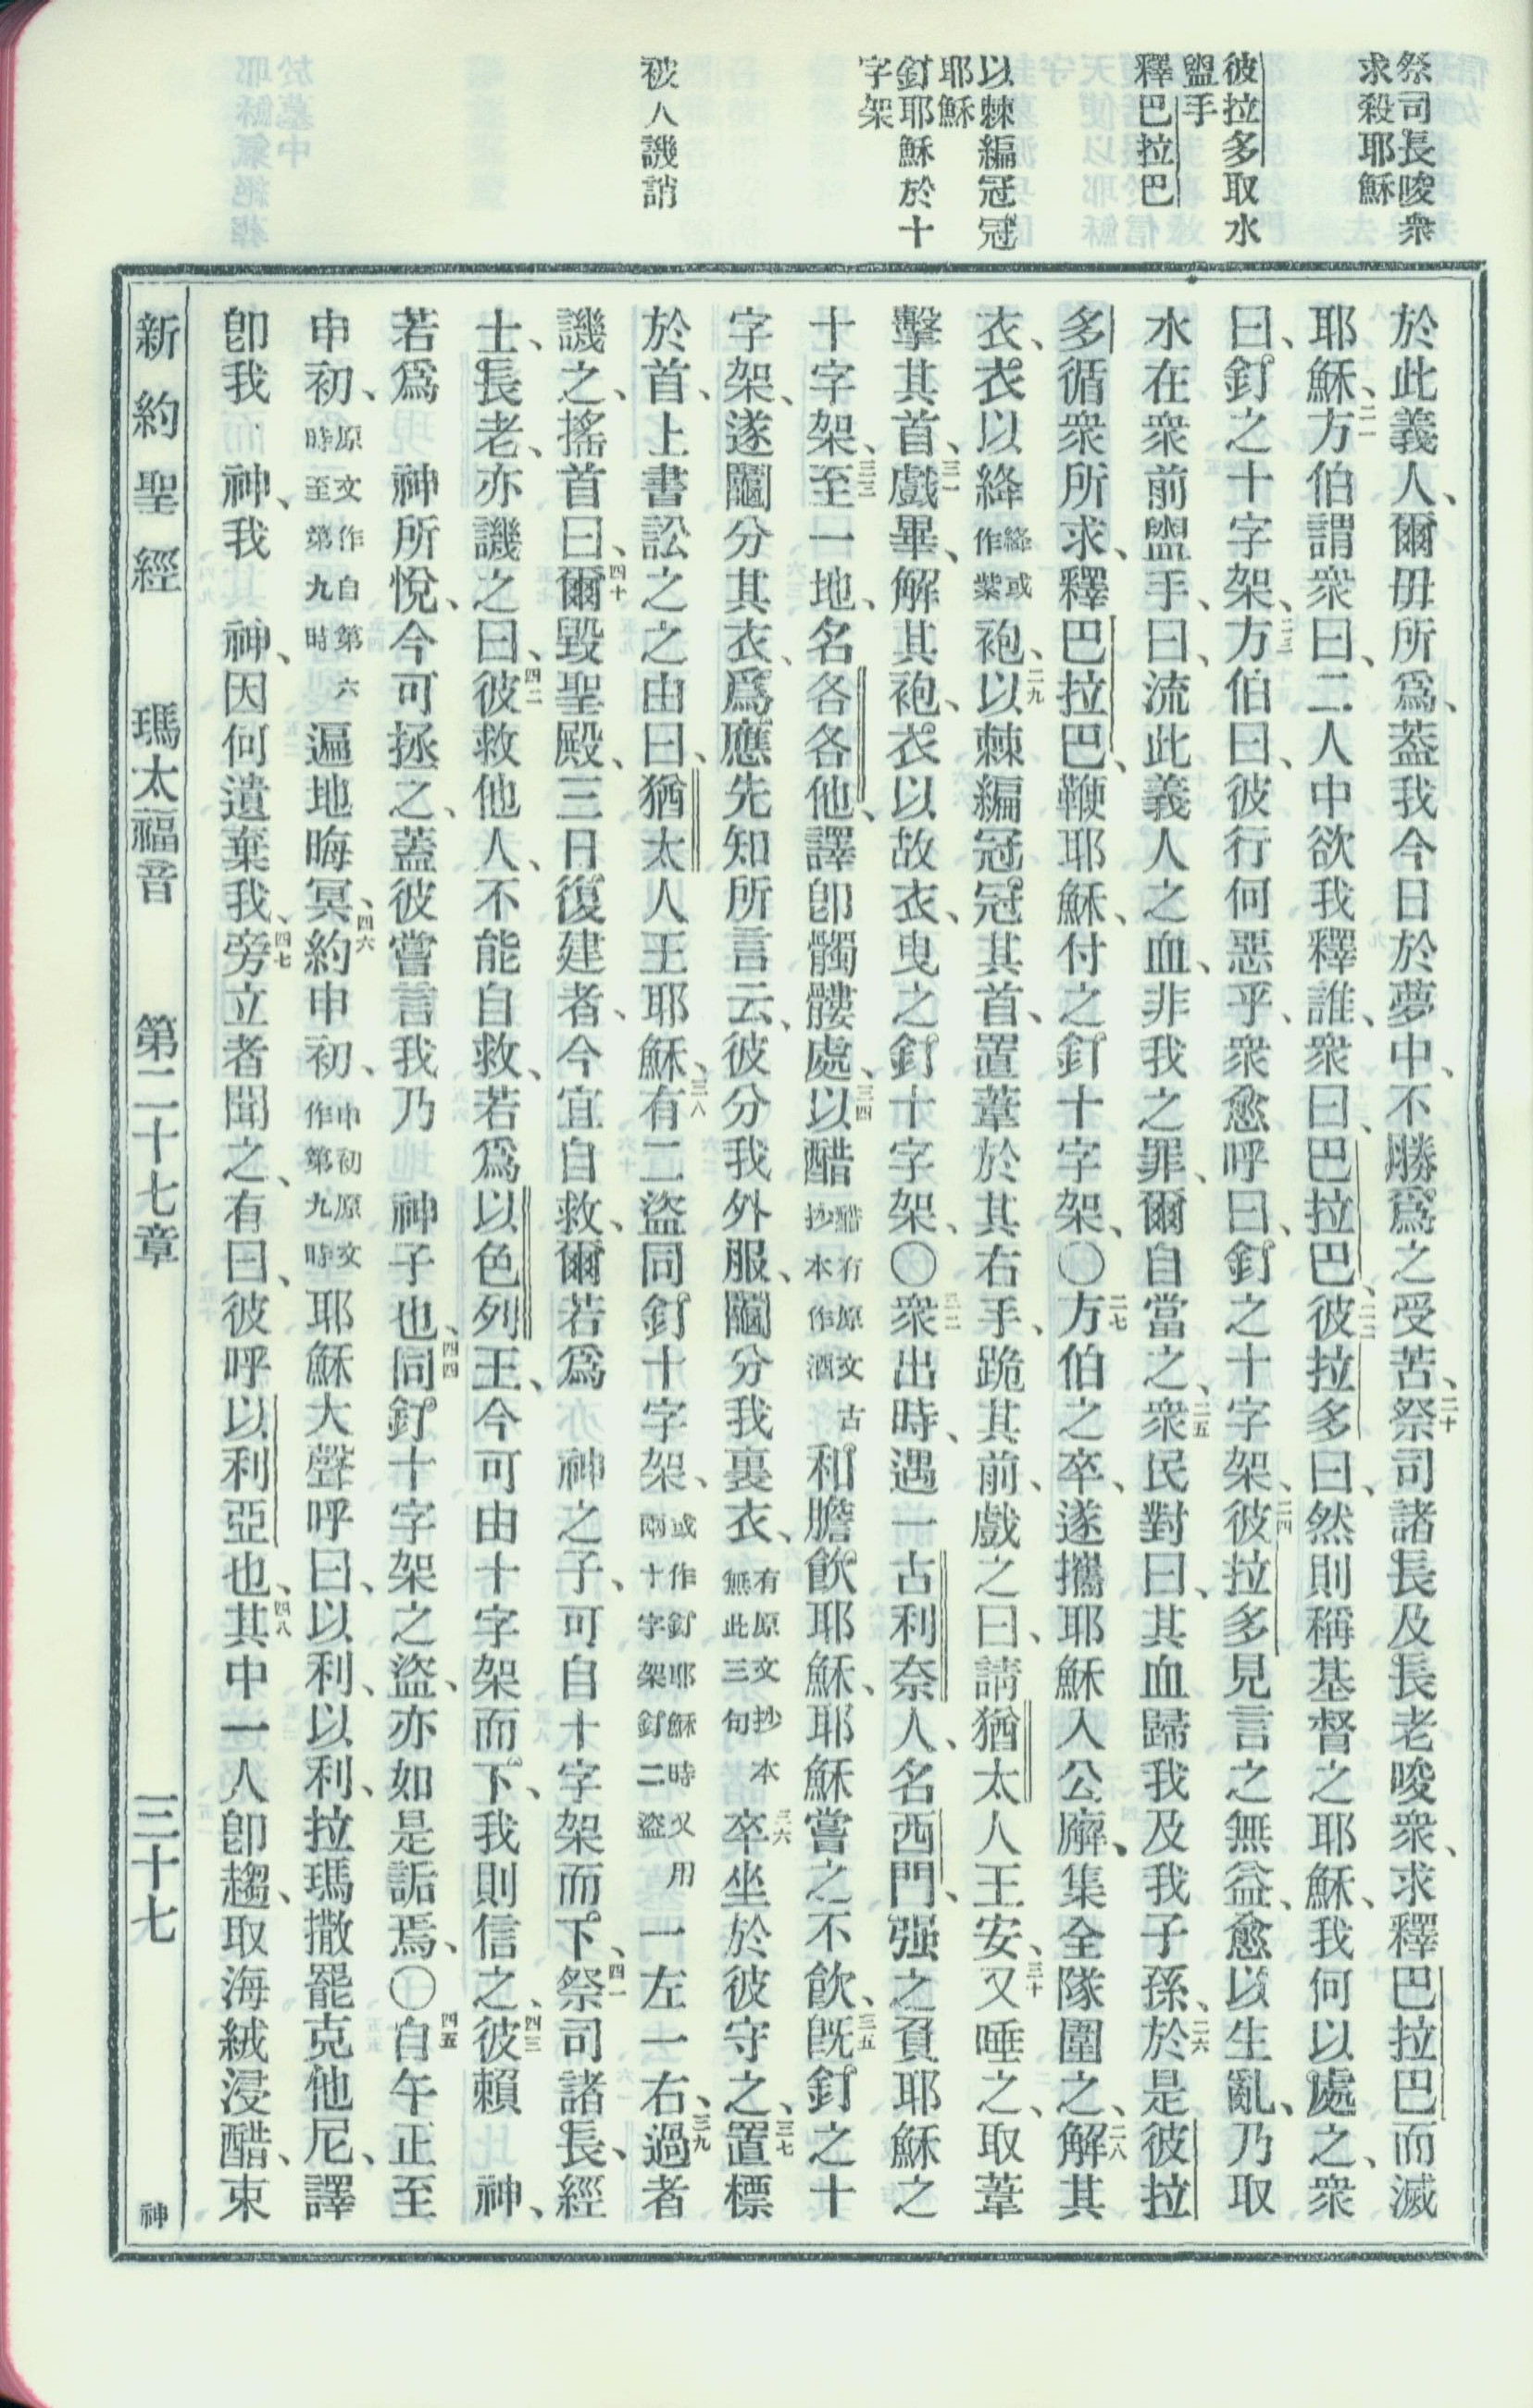 祭司長唆衆
求殺耶穌
彼拉多取水
盥手
釋巴拉巴
以棘編冠冠
耶穌
釘耶穌於十
字架
被人譏誚
於此義人、爾毋所爲、蓋我今日於夢中、不勝爲之受苦、二十祭司諸長及長老唆衆、求釋巴拉巴而滅
耶穌、二一方伯謂衆曰、二人中欲我釋誰、衆曰、巴拉巴、二二彼拉多曰、然則稱基督之耶穌、我何以處之、衆
曰、釘之十字架、二三方伯曰、彼行何惡乎、衆愈呼曰、釘之十字架、二四彼拉多見言之無益、愈以生亂、乃取
水在衆前盥手、曰、流此義人之血、非我之罪、爾自當之、二五衆民對曰、其血歸我及我子孫、二六於是彼拉
多循衆所求、釋巴拉巴、鞭耶穌、付之釘十字架、〇二七方伯之卒、遂攜耶穌入公廨、集全隊圍之、二八解其
衣、衣以絳絳或作紫袍、二九以棘編冠冠其首、置葦於其右手、跪其前、戲之曰、請猶太人王安、三十又唾之、取葦
擊其首、三一戲畢、解其袍、衣以故衣、曳之釘十字架、〇三二衆出時、遇一古利奈人、名西門、强之負耶穌之
十字架、三三至一地、名各各他、譯卽髑髏處、三四以醋醋有原文古抄本作酒和膽飮耶穌、耶穌嘗之不飮、三五旣釘之十
字架、遂鬮分其衣、爲應先知所言云、彼分我外服、鬮分我裏衣、有原文抄本無此三句三六卒坐於彼守之、三七置標
於首、上書訟之之由曰、猶太人王耶穌、三八有二盜同釘十字架、或作釘耶穌時又用兩十字架釘二盜一左一右、三九過者
譏之、搖首曰、四十爾毀聖殿、三日復建者、今宜自救、爾若爲神之子、可自十字架而下、四一祭司諸長、經
士、長老、亦譏之曰、四二彼救他人、不能自救、若爲以色列王、今可由十字架而下、我則信之、四三彼賴神、
若爲神所悅、今可拯之、蓋彼嘗言我乃神子也、四四同釘十字架之盜、亦如是詬焉、〇四五自午正至
申初、原文作自第六時至第九時遍地晦冥、四六約申初、申初原文作第九時耶穌大聲呼曰、以利、以利、拉瑪撒罷克他尼、譯
卽我神、我神、因何遺棄我、四七旁立者聞之、有曰、彼呼以利亞也、四八其中一人卽趨、取海絨浸醋、束
新約聖經 瑪太福音 第二十七章 三十七 神